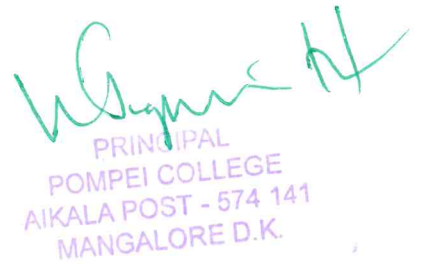 PRINCIPAL
POMPEI COLLEGE
AIKALA POST - 574 141
MANGALORE D.K.